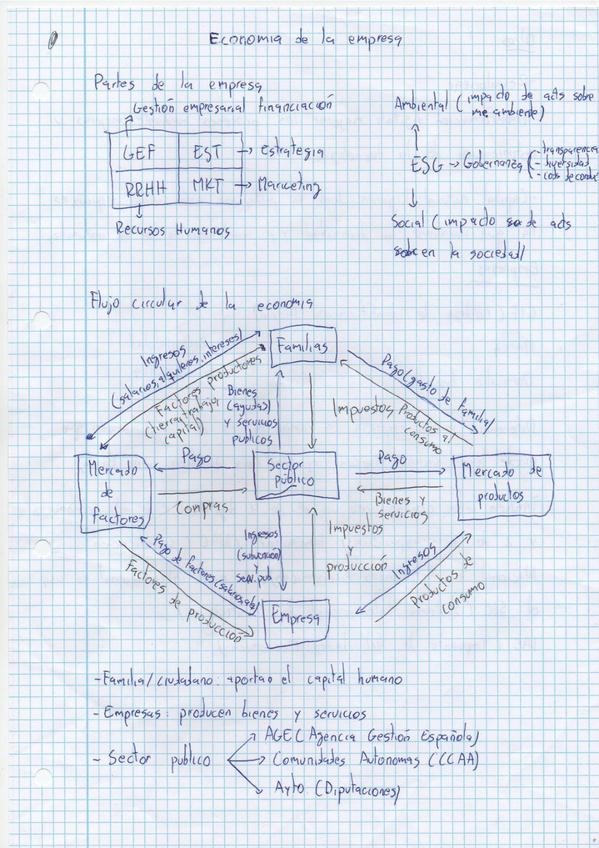 Economia de la empresa
Partes de la empresa
Gestión empresarial financiación
GEF
EST → Estrategia
RRHH
MKT → Marketing
Recursos Humanos
Ambiental (impacto de acts sobre
me ambiente)
ESG → Gobernanza
- transparencia
- diversidad
Social (impacto de acts
en la sociedad)
Flujo circular de la economia
Ingresos
(salarios, alquileres, intereses)
Factores productores
(tierra, trabajo,
capital)
Familias
Pago (gasto de familia)
Productos al
consumo
Bienes
(ayudas)
y servicios
públicos
Impuestos
Mercado
de
factores
Pago
Compras
Sector
público
Pago
Bienes y
servicios
Mercado de
productos
Ingresos
(subvención)
y
serv. pub
Impuestos
y
producción
Pago de factores
Factores de producción
Empresa
Ingresos
Productos de
consumo
- Familia/ciudadano: aportao el capital humano
- Empresas: producen bienes y servicios
- Sector publico
AGE (Agencia Gestión Española)
Comunidades Autonomas (CCAA)
Ayto (Diputaciones)